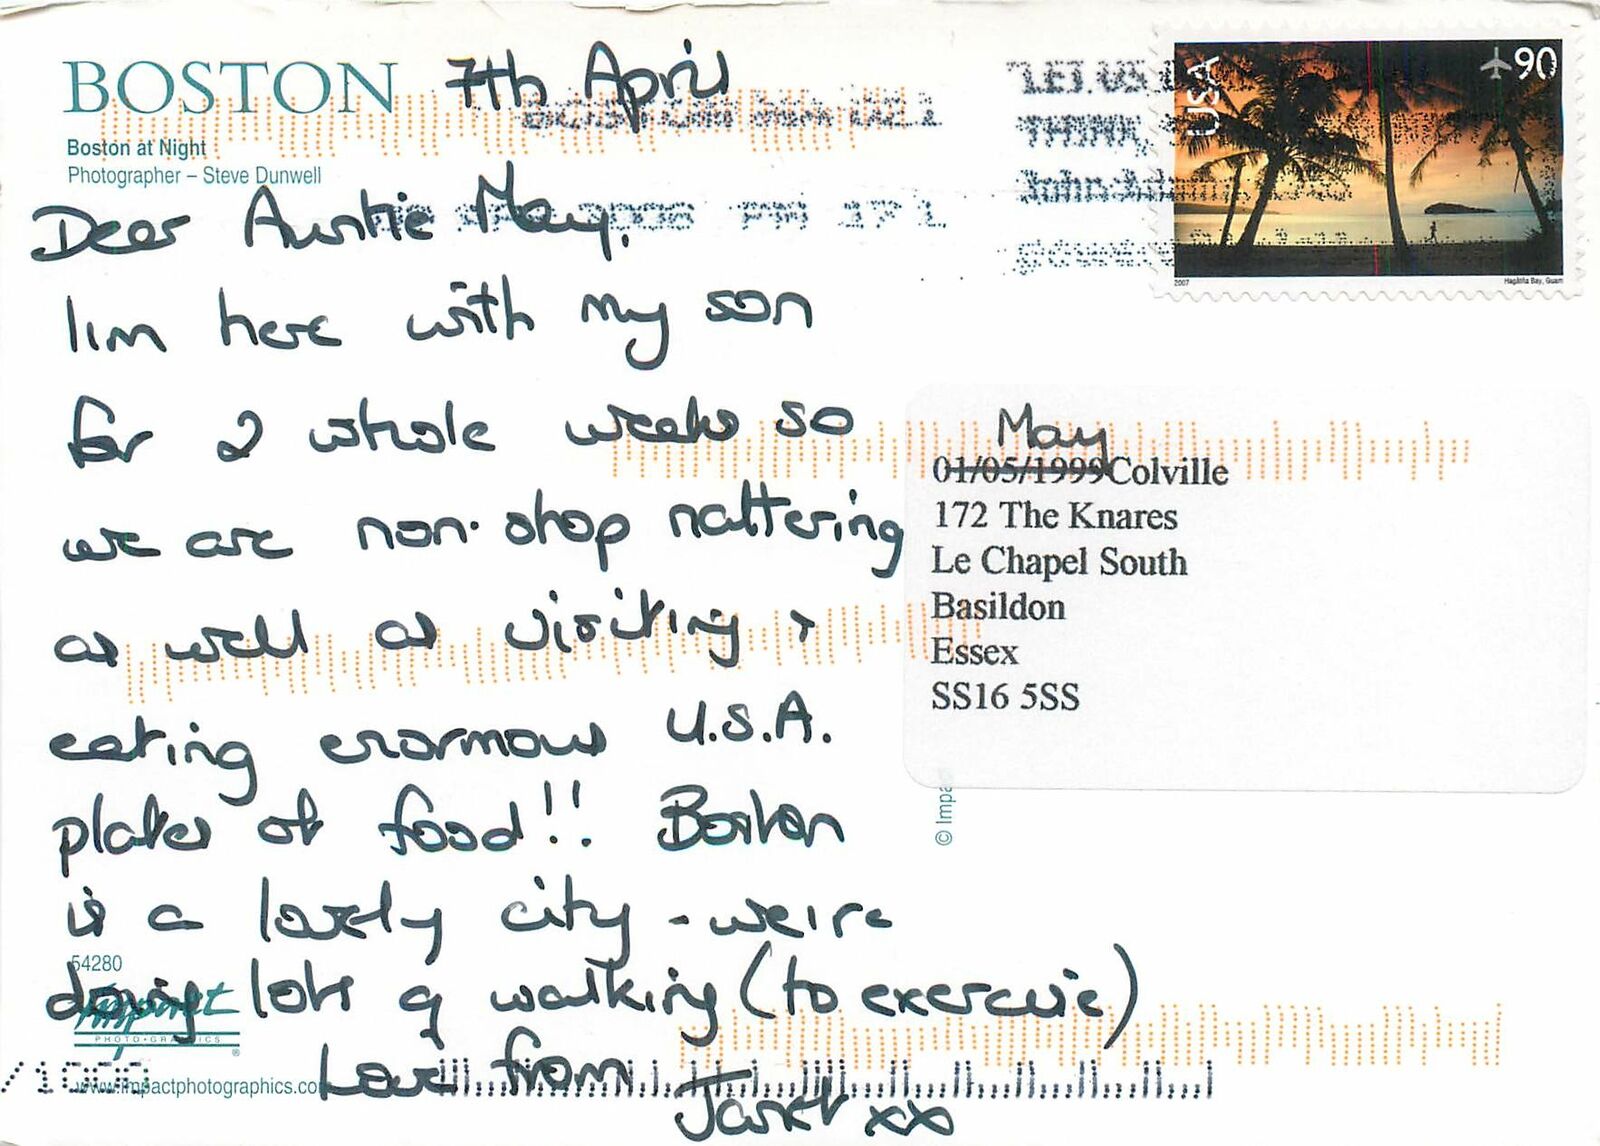 BOSTON
Boston at Night
Photographer – Steve Dunwell
7th April
Dear Auntie May,
I'm here with my son
for 2 whole weeks so
we are non-stop nattering
as well as visiting +
eating enormous U.S.A.
plates of food!! Boston
is a lovely city - we're
doing lots of walking (to exercise)
Love from
Janet xx
54280
impact
PHOTO·GRAPHICS
®
www.impactphotographics.com
BOSTON MA 021
PM 17 L
THINK
John Adams
USA
90
2007
Hagåtña Bay, Guam
May
01/05/1999Colville
172 The Knares
Le Chapel South
Basildon
Essex
SS16 5SS
© Impa